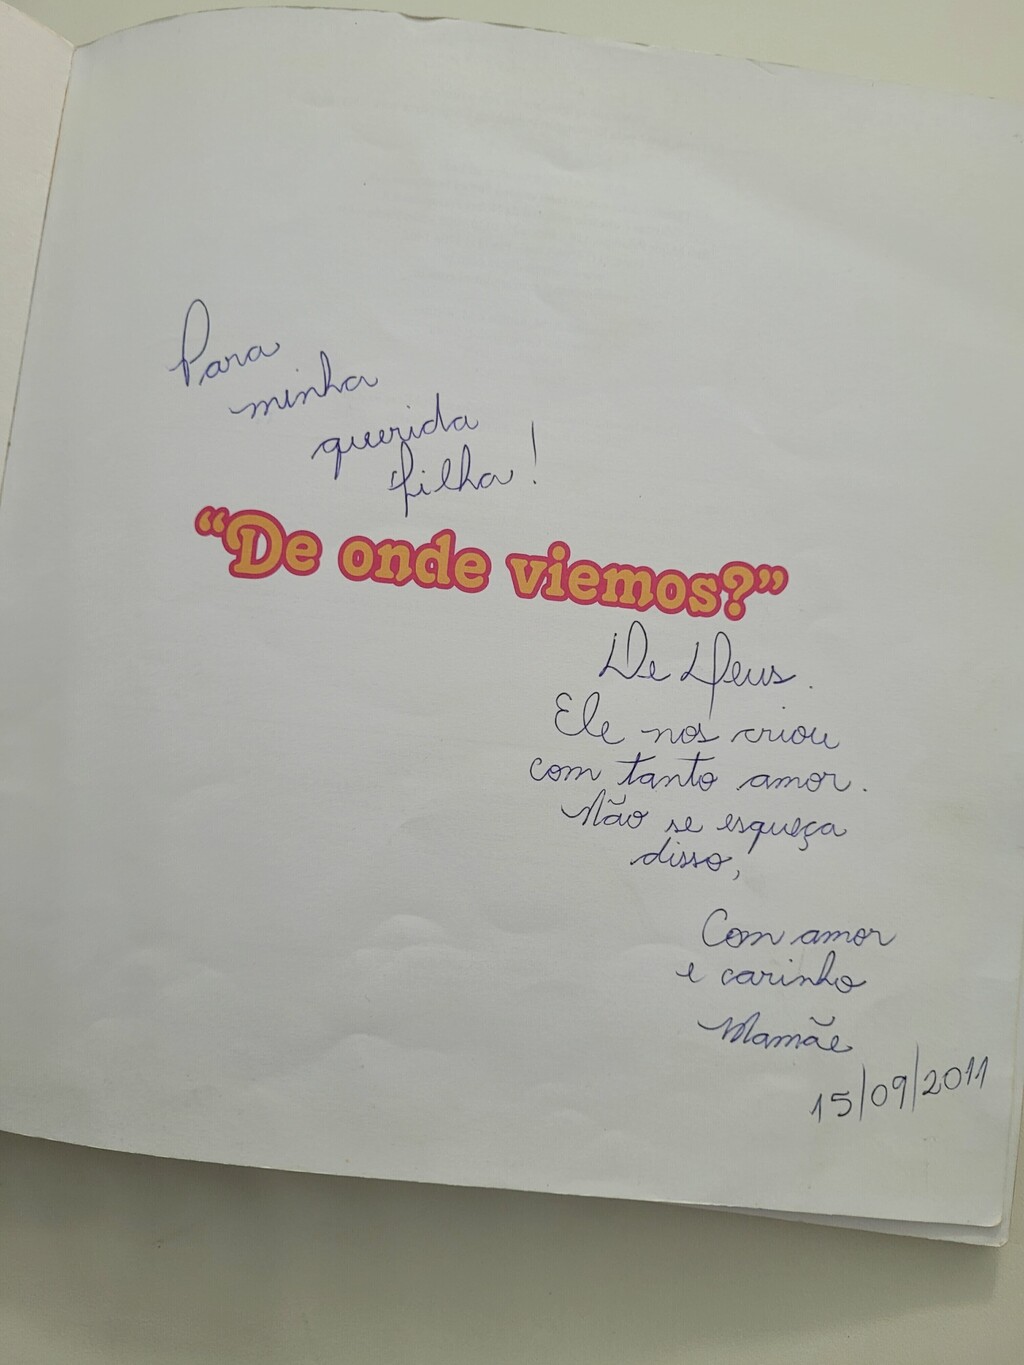 Para
minha
querida
filha!
“De onde viemos?”
De Deus.
Ele nos criou
com tanto amor.
Não se esqueça
disso,
Com amor
e carinho
Mamãe
15/09/2011